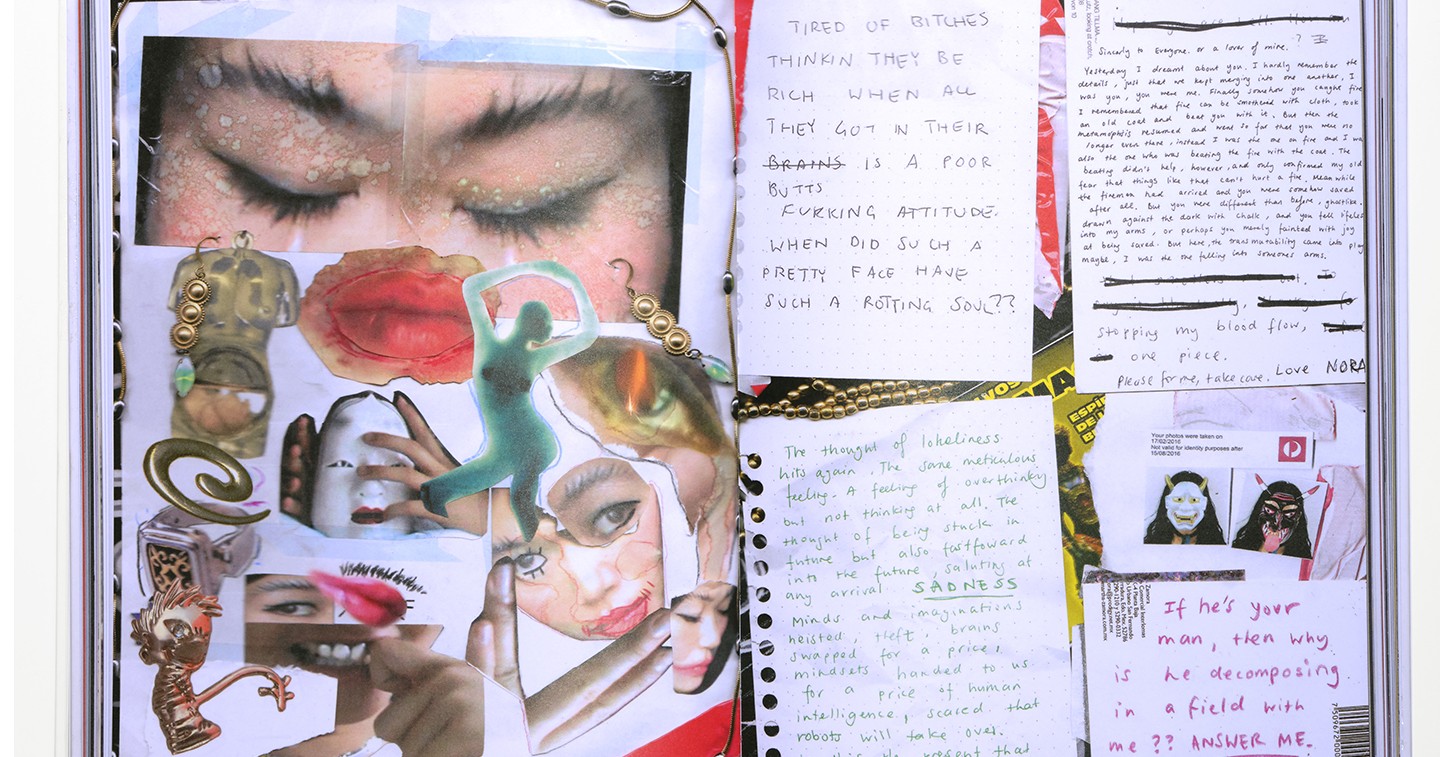 TIRED OF BITCHES
THINKIN THEY BE
RICH WHEN ALL
THEY GOT IN THEIR
BRAINS IS A POOR
BUTTS
FUKKING ATTITUDE.
WHEN DID SUCH A
PRETTY FACE HAVE
SUCH A ROTTING SOUL??
Sincerly to Everyone. or a lover of mine.
Yesterday I dreamt about you, I hardly remember the
details, just that we kept merging into one another, I
was you, you were me. Finally somehow you caught fire
I remembered that fire can be smothered with cloth, took
an old coat and beat you with it. But then the
metamorphosis resumed and went so far that you were no
longer even there, instead I was the one on fire and I was
also the one who was beating the fire with the coat. The
beating didn't help, however, and only confirmed my old
fear that things like that can't hurt a fire. Meanwhile
the firemen had arrived and you were somehow saved
after all. But you were different than before, ghostlike.
drawn against the dark with chalk, and you fell lifeless
into my arms, or perhaps you merely fainted with joy
at being saved. But here, the transmutability came into play
maybe, I was the one falling into someones arms.
stopping my blood flow,
one piece.
Please for me, take care. Love NORA
The thought of loneliness
hits again. The same meticulous
feeling. A feeling of overthinking
but not thinking at all. The
thought of being stuck in
future but also fastfoward
into the future, saluting at
any arrival. SADNESS
Minds and imaginations
heisted, theft, brains
swapped for a price,
mindsets handed to us
for a price of human
intelligence, scared that
robots will take over.
the present that
Your photos were taken on
17/02/2016
Not valid for identity purposes after
15/08/2016
If he's your
man, then why
is he decomposing
in a field with
me?? ANSWER ME.